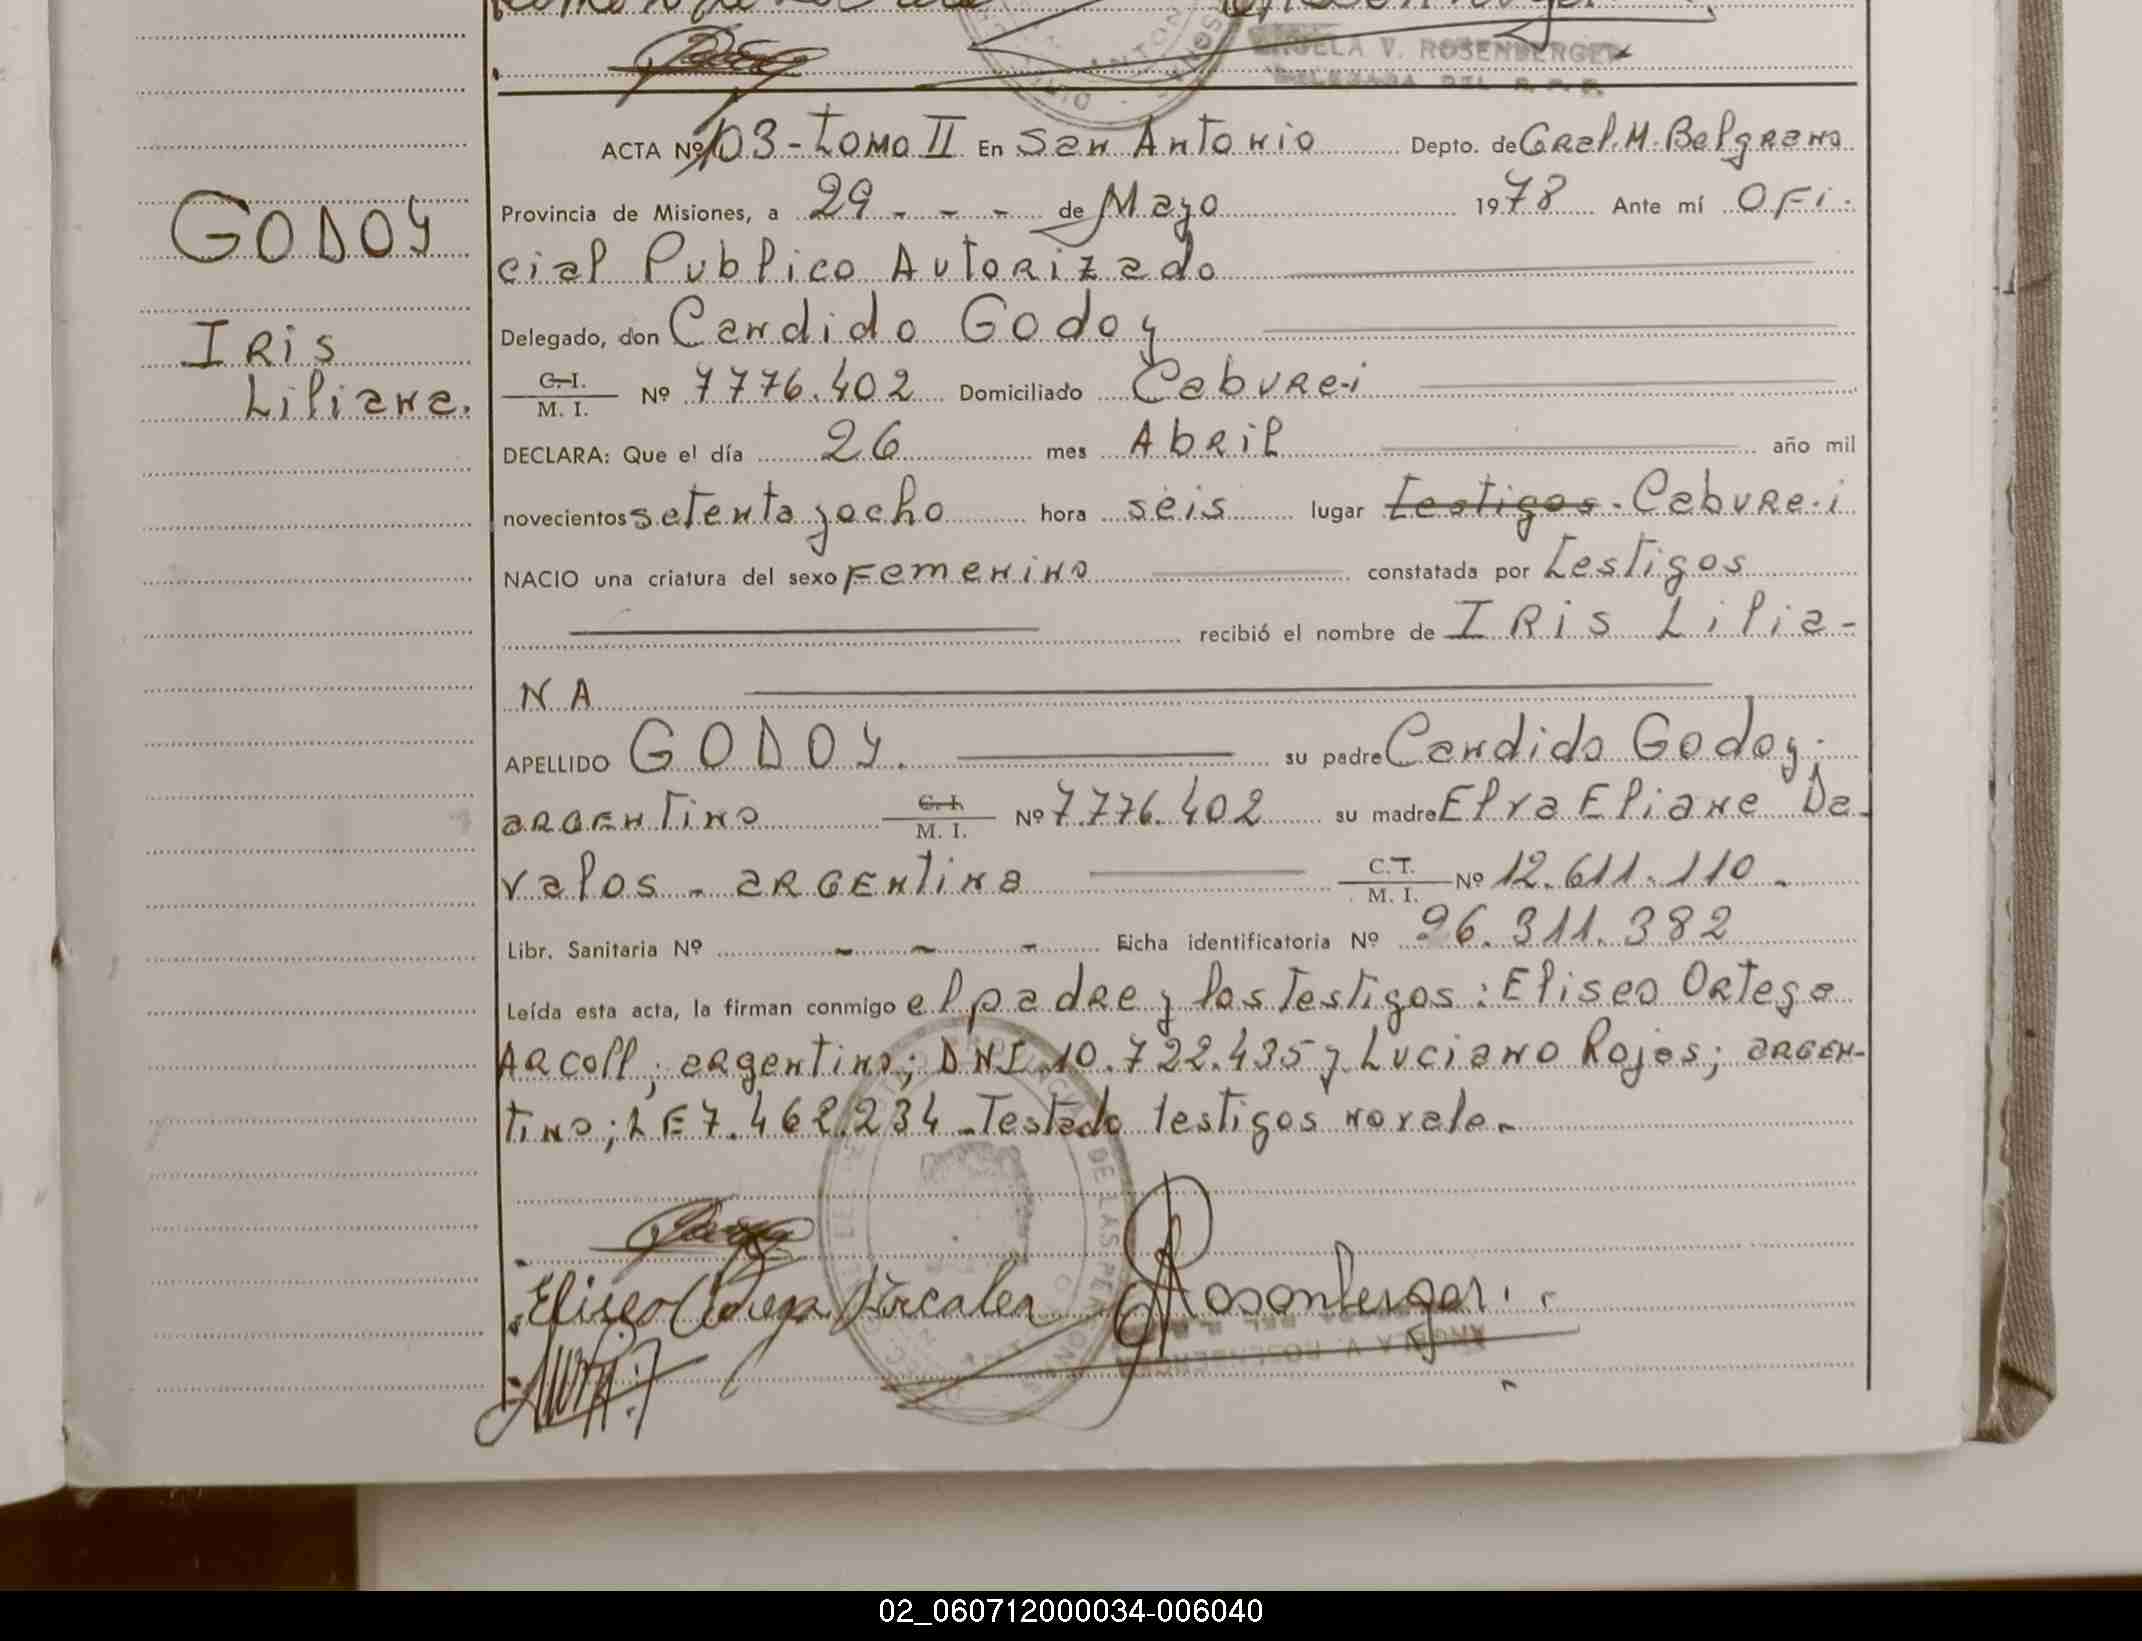 ANGELA V. ROSENBERGER
DELEGADA DEL R. P. P.
GODOY
IRis
Liliana.
ACTA Nº 103 - Tomo II En San Antonio Depto. de Gral. M. Belgrano
Provincia de Misiones, a 29 - - - de Mayo 1978 Ante mí OFi-
cial Publico Autorizado
Delegado, don Candido Godoy
C. I.
M. I. Nº 7776.402 Domiciliado Cabure-i
DECLARA: Que el día 26 mes Abril año mil
novecientos setenta y ocho hora seis lugar testigos. Cabure-i
NACIO una criatura del sexo Femenino constatada por testigos
recibió el nombre de IRis Lilia-
NA
APELLIDO GODOY. su padre Candido Godoy.
argentino C. I. M. I. Nº 7.776.402 su madre Elva Eliane Da-
valos - argentina C.T. M. I. Nº 12.611.110.
Libr. Sanitaria Nº - - - Ficha identificatoria Nº 96.311.382
Leída esta acta, la firman conmigo el padre y los testigos: Eliseo Ortega
Arcoll; argentino; DNI 10.722.435 y Luciano Rojas; argen-
tino; LE 7.462.234 - Testado testigos no vale.-
Eliseo Ortega
Rosenberger
ANGELA V. ROSENBERGER
02_060712000034-006040